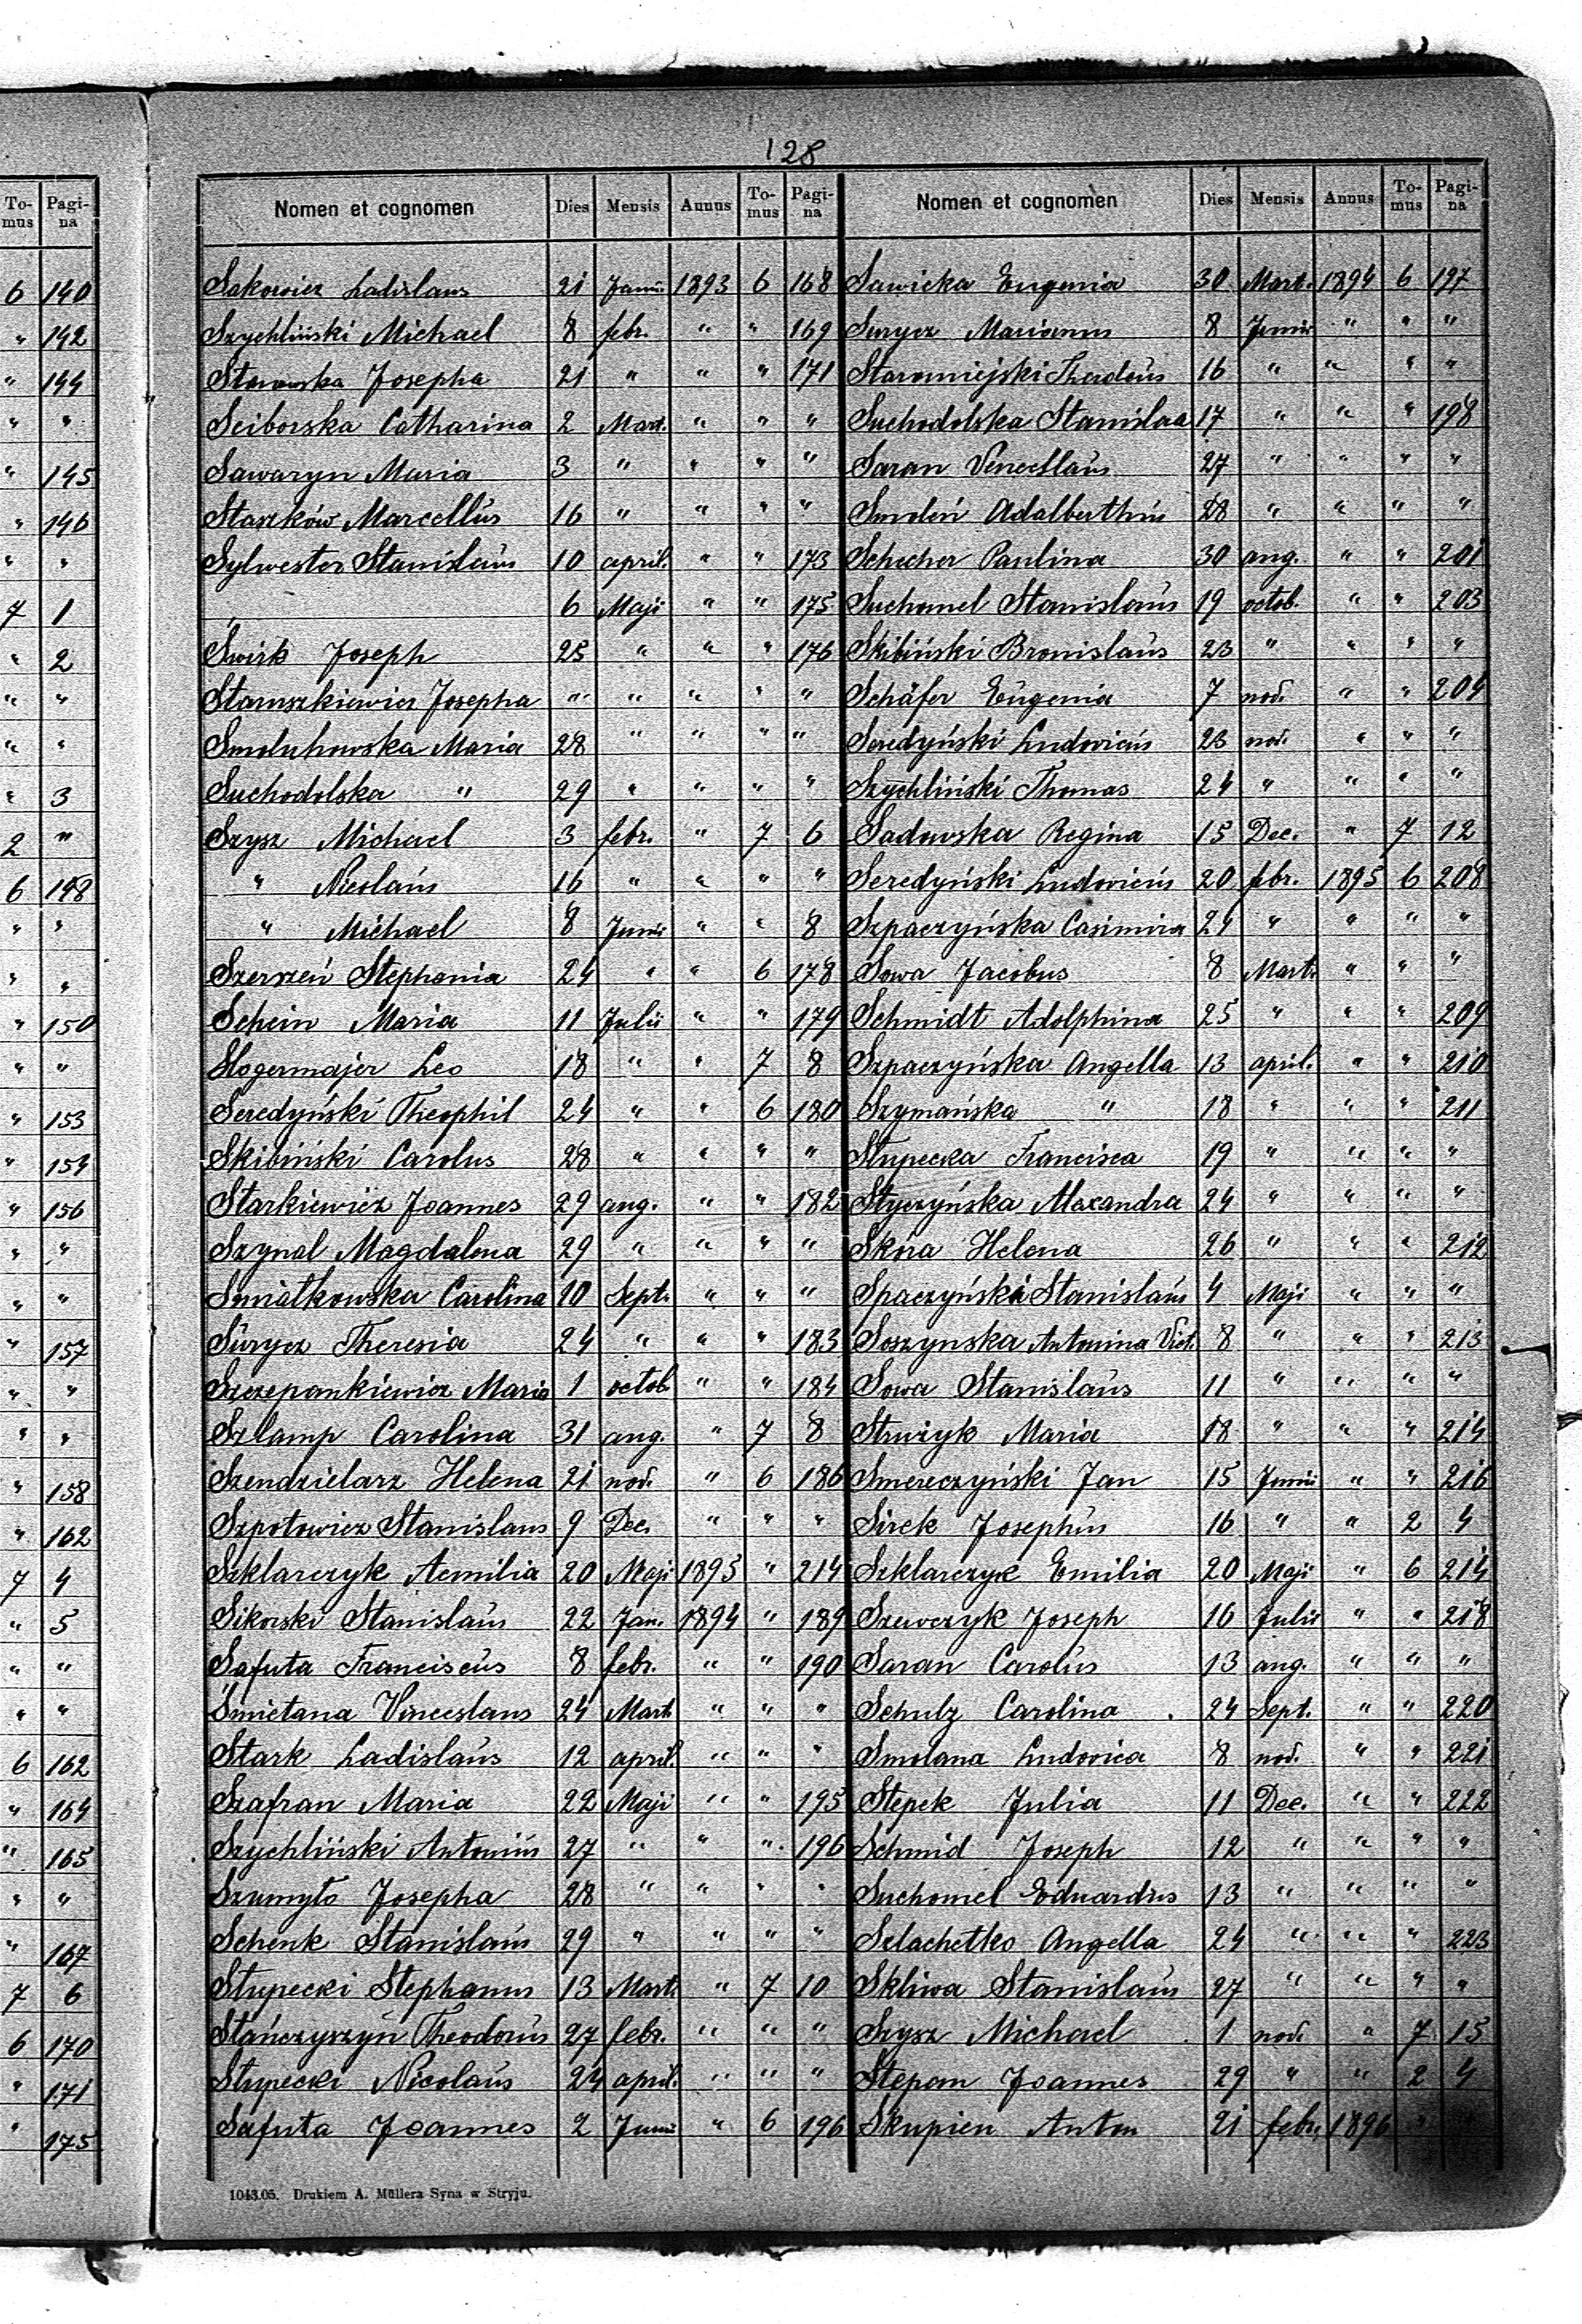 128
To-mus Pagi-na
6 140
" 142
" 144
" "
" 145
" 146
" "
7 1
" 2
" "
" "
" 3
2 "
6 148
" "
" "
" 150
" "
" 153
" 154
" 156
" "
" "
" 157
" "
" "
" 158
" 162
7 4
" 5
" "
" "
6 162
" 164
" 165
" "
" 167
7 6
6 170
" 171
" 175
Nomen et cognomen Dies Mensis Annus To-mus Pagi-na
Sakowicz Ladislaus 21 Janu. 1893 6 168
Szychliński Michael 8 febr. " " 169
Starowska Josepha 21 " " " 171
Sciborska Catharina 2 Mart. " " "
Sawaryn Maria 3 " " " "
Staszków Marcellus 16 " " " "
Sylwester Stanislaus 10 april. " " 173
6 Maji " " 175
Swirk Joseph 25 " " " 176
Staruszkiewicz Josepha " " " " "
Smoluhowska Maria 28 " " " "
Suchodolska " 29 " " " "
Szysz Michael 3 febr. " 7 6
" Nicolaus 16 " " " "
" Michael 8 Junii " " 8
Szerszeń Stephania 24 " " 6 178
Schein Maria 11 Julii " " 179
Slogermajer Leo 18 " " 7 8
Seredyński Theophil 24 " " 6 180
Skibiński Carolus 28 " " " "
Starkiewicz Joannes 29 aug. " " 182
Szynal Magdalena 29 " " " "
Smiałkowska Carolina 10 Sept. " " "
Surycz Theresia 24 " " " 183
Szczepankiewicz Maria 1 octob " " 184
Szlamp Carolina 31 aug. " 7 8
Szendzielarz Helena 21 nov. " 6 186
Szpotowicz Stanislaus 9 Dec. " " "
Szklarczyk Aemilia 20 Maji 1895 " 214
Sikorski Stanislaus 22 Jan. 1894 " 189
Safuta Franciscus 8 febr. " " 190
Śmietana Vinceslaus 24 Mart. " " "
Stark Ladislaus 12 april. " " "
Szafran Maria 22 Maji " " 195
Szychliński Antonius 27 " " " 196
Szumyło Josepha 28 " " " "
Schenk Stanislaus 29 " " " "
Słupecki Stephanus 13 Mart. " 7 10
Stańczyszyn Theodorus 27 febr. " " "
Słupecki Nicolaus 24 april. " " "
Safuta Joannes 2 Junii " 6 196
Nomen et cognomen Dies Mensis Annus To-mus Pagi-na
Sawicka Eugenia 30 Mart. 1894 6 197
Surycz Marianus 8 Junii " " "
Staromiejski Thadeus 16 " " " "
Suchodolska Stanislaa 17 " " " 198
Saran Venceslaus 27 " " " "
Smoleń Adalberthus 28 " " " "
Schecher Paulina 30 aug. " " 201
Suchomel Stanislaus 19 octob. " " 203
Skibiński Bronislaus 23 " " " "
Schäfer Eugenia 7 nov. " " 204
Seredyński Ludovicus 23 nov. " " "
Szychliński Thomas 24 " " " "
Sadowska Regina 15 Dec. " 7 12
Seredyński Ludovicus 20 febr. 1895 6 208
Szpaczyńska Casimira 24 " " " "
Sowa Jacobus 8 Mart. " " "
Schmidt Adolphina 25 " " " 209
Szpaczyńska Angella 13 april. " " 210
Szymańska " 18 " " " 211
Słupecka Francisca 19 " " " "
Styczyńska Alexandra 24 " " " "
Skóra Helena 26 " " " 212
Spaczyński Stanislaus 4 Maji " " "
Soszynska Antonina Vict. 8 " " " 213
Sowa Stanislaus 11 " " " "
Struzyk Maria 18 " " " 214
Smereczyński Jan 15 Junii " " 216
Sirek Josephus 16 " " 2 4
Szklarczyk Emilia 20 Maji " 6 214
Szewczyk Joseph 16 Julii " " 218
Saran Carolus 13 aug. " " "
Schulz Carolina 24 Sept. " " 220
Smolana Ludovica 8 nov. " " 221
Stepek Julia 11 Dec. " " 222
Schmid Joseph 12 " " " "
Suchomel Eduardus 13 " " " "
Szlachetko Angella 24 " " " 223
Skliwa Stanislaus 27 " " " "
Szysz Michael 1 nov. " 7 15
Stepan Joannes 29 " " 2 4
Skupien Anton 21 febr. 1896
1043.05. Drukiem A. Müllera Syna w Stryju.